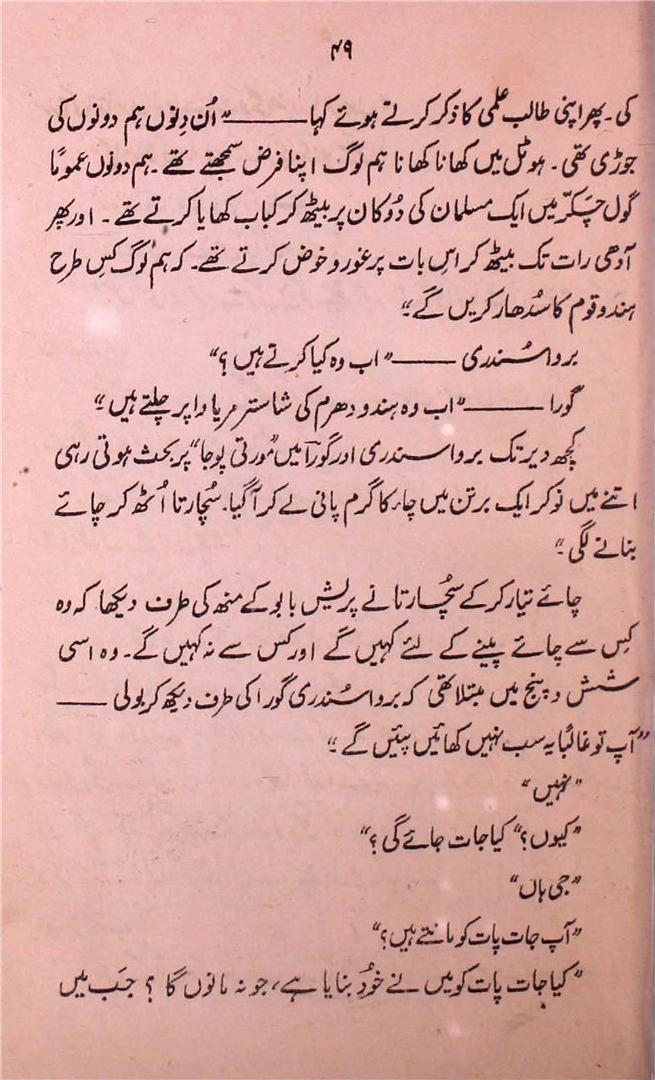 ۴۹
کی۔ پھر اپنی طالب علمی کا ذکر کرتے ہوئے کہا ——— "اُن دِنوں ہم دونوں کی
جوڑی تھی۔ ہوٹل میں کھانا کھانا ہم لوگ اپنا فرض سمجھتے تھے۔ ہم دونوں عموماً
گول چَکّر میں ایک مسلمان کی دُوکان پر بیٹھ کر کباب کھایا کرتے تھے۔ اور پھر
آدھی رات تک بیٹھ کر اس بات پر غور و خوض کرتے تھے۔ کہ ہم لوگ کس طرح
ہندو قوم کا سُدھار کریں گے"
بروا سُندری ——— "اب وہ کیا کرتے ہیں؟"
گورا ——— "اب وہ ہندو دھرم کی شاستر مریادا پر چلتے ہیں"
کچھ دیر تک بروا سندری اور گورا میں "مُورتی پوجا" پر بحث ہوتی رہی
اتنے میں نوکر ایک برتن میں چاء کا گرم پانی لے کر آ گیا۔ سُچارتا اُٹھ کر چائے
بنانے لگی"
چائے تیار کر کے سُچارتا نے پریش بابو کے منھ کی طرف دیکھا کہ وہ
کِس سے چائے پینے کے لئے کہیں گے اور کس سے نہ کہیں گے۔ وہ اسی
شش و پنج میں مبتلا تھی کہ بروا سُندری گورا کی طرف دیکھ کر بولی ———
"آپ تو غالباً یہ سب نہیں کھائیں پیئیں گے"
"نہیں"
"کیوں؟" کیا جات جائے گی؟"
"جی ہاں"
"آپ جات پات کو مانتے ہیں؟"
"کیا جات پات کو میں نے خود بنایا ہے، جو نہ مانوں گا؟ جَب میں